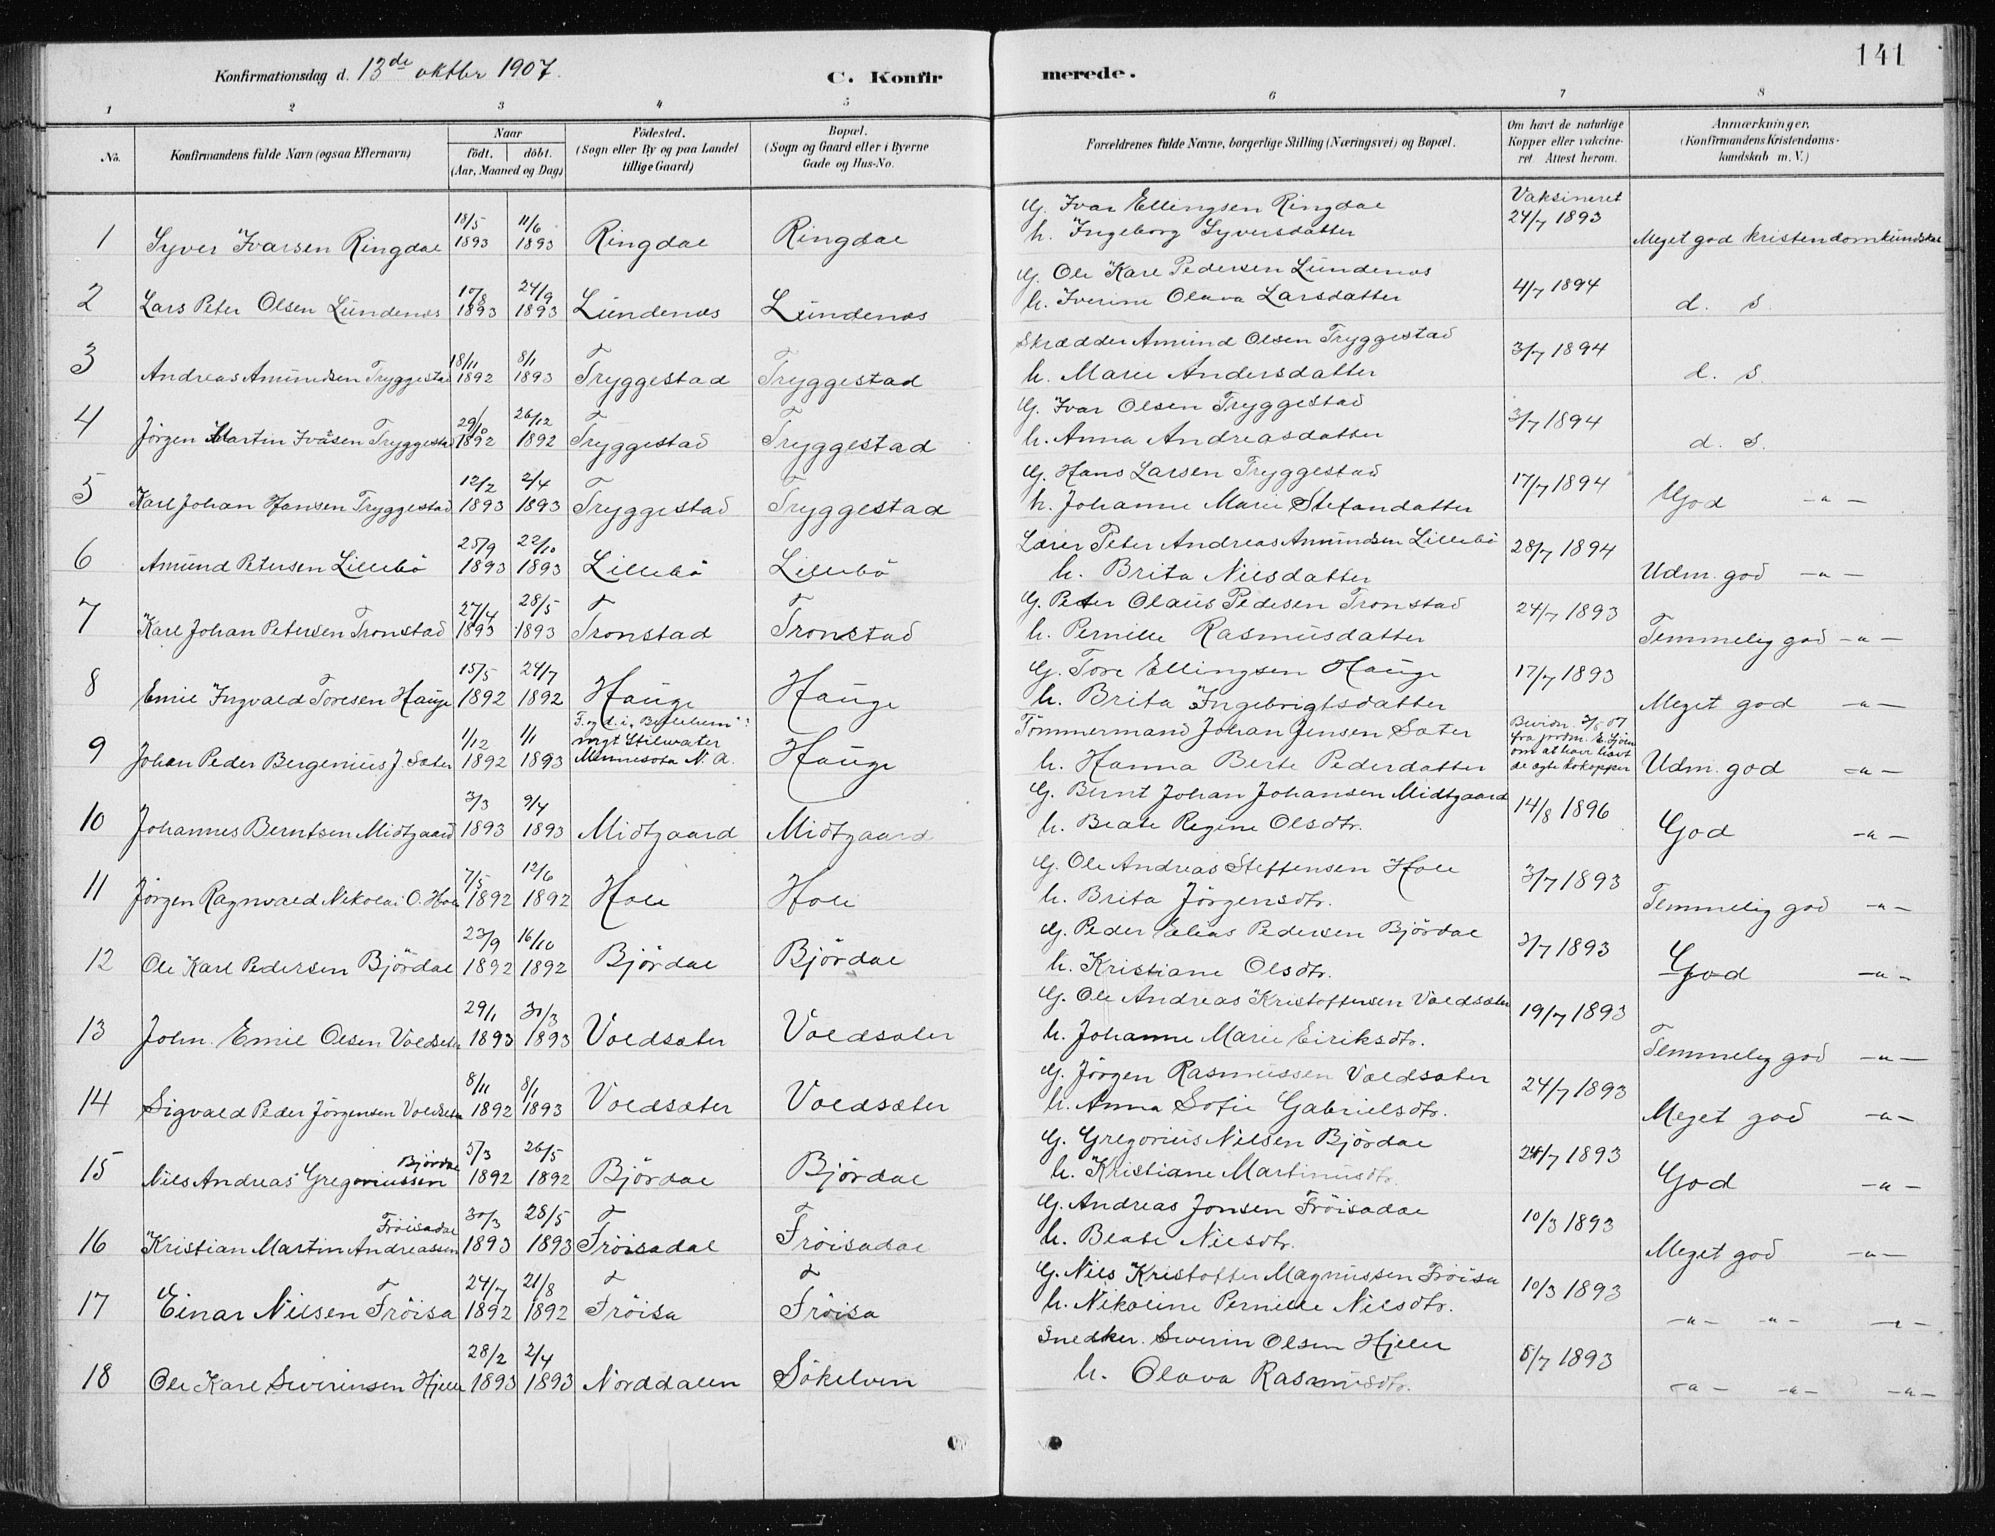 141
Konfirmationsdag d. 13de oktbr 1907.
C. Konfirmerede.
1 2 3 4 5 6 7 8
No. Konfirmandens fulde Navn (ogsaa Efternavn) Naar födt. döbt. (Aar, Maaned og Dag) Födested. (Sogn eller By og paa Landet tillige Gaard) Bopæl. (Sogn og Gaard eller i Byerne Gade og Hus-No. Forældrenes fulde Navne, borgerlige Stilling (Næringsvei) og Bopæl. Om havt de naturlige Kopper eller vakcineret Attest herom. Anmærkninger. (Konfirmandens Kristendomskundskab m. V.)
1 Syver Ivarsen Ringdal 18/5 1893 11/6 1893 Ringdal Ringdal G. Ivar Ellingsen Ringdal Vaksineret 24/7 1893 Meget god kristendomkundskab
h. Ingeborg Syversdatter
2 Lars Peter Olsen Lundenæs 10/8 1893 24/9 1893 Lundenæs Lundenæs G. Ole Karl Pedersen Lundenæs 4/7 1894 d. s.
h. Iverine Olava Larsdatter
3 Andreas Amundsen Tryggestad 18/11 1892 8/1 1893 Tryggestad Tryggestad Skrædder Amund Olsen Tryggestad 3/7 1894 d. s.
h. Marie Andersdatter
4 Jörgen Martin Ivasen Tryggestad 29/10 1892 26/12 1892 Tryggestad Tryggestad G. Ivar Olsen Tryggestad 3/7 1894 d. s.
h. Anna Andreasdatter
5 Karl Johan Hansen Tryggestad 12/2 1893 2/4 1893 Tryggestad Tryggestad G. Hans Larsen Tryggestad 17/7 1894 God -"-
h. Johanne Marie Stefandatter
6 Amund Petersen Lillebö 25/9 1893 22/10 1893 Lillebö Lillebö Lærer Peter Andreas Amundsen Lillebö 28/7 1894 Udm. god -"-
h. Brita Nilsdatter
7 Karl Johan Petersen Tronstad 27/4 1893 28/5 1893 Tronstad Tronstad G. Peter Olaus Pedesen Tronstad 24/7 1893 Temmelig god -"-
h. Pernille Rasmusdatter
8 Emil Ingvald Toresen Hauge 15/5 1892 24/7 1892 Hauge Hauge G. Tore Ellingsen Hauge 17/7 1893 Meget god -"-
h. Brita Ingebrigtsdatter
9 Johan Peder Bergenius J. Sæter 1/12 1892 1/1 1893 F. og d. i „Bethlehem": mgt Stilwater Minnesota N. A. Hauge Tömmermand Johan Jensen Sæter om at have havt de ægte kokopper Udm. god -"-
h. Hanna Berte Pedersdatter
10 Johannes Berntsen Midtgaard 3/3 1893 9/4 1893 Midtgaard Midtgaard G. Bernt Johan Johansen Midtgaard 14/8 1896 God -"-
h. Beate Regine Olsdtr.
11 Jörgen Ragnvald Nikolai O. Hole 7/5 1892 12/6 1892 Hole Hole G. Ole Andreas Steffensen Hole 3/7 1893 Temmelig god -"-
h. Brita Jörgensdtr.
12 Ole Karl Pedersen Björdal 23/9 1892 16/10 1892 Björdal Björdal G. Peder Elias Pedersen Björdal 3/7 1893 God -"-
h. Kristiane Olsdtr.
13 John Emil Olsen Voldsæter 29/1 1893 30/3 1893 Voldsæter Voldsæter G. Ole Andreas Kristoffersen Voldsæter 19/7 1893 Temmelig god -"-
h. Johanne Marie Eiriksdtr.
14 Sigvald Peder Jörgensen Voldsæter 8/11 1892 8/1 1893 Voldsæter Voldsæter G. Jörgen Rasmussen Voldsæter 24/7 1893 Meget god -"-
h. Anna Sofie Gabrielsdtr.
15 Nils Andreas Gregoriussen Björdal 5/3 1892 26/5 1892 Björdal Björdal G. Gregorius Nilsen Björdal 24/7 1893 God -"-
h. Kristiane Martinusdtr.
16 Kristian Martin Andreassen Fröisadal 30/3 1893 28/5 1893 Fröisadal Fröisadal G. Andreas Jonsen Fröisadal 10/3 1893 Meget god -"-
h. Beate Nilsdtr.
17 Einar Nilsen Fröisa 24/7 1892 21/8 1892 Fröisa Fröisa G. Nils Kristoffer Magnussen Fröisa 10/3 1893 -"- -"- -"-
h. Nikoline Pernille Nilsdtr.
18 Ole Karl Severinsen Hjelle 28/2 1893 2/4 1893 Norddalen Sökelven Snedker Severin Olsen Hjelle 8/7 1893 -"- -"- -"-
h. Olava Rasmusdtr.